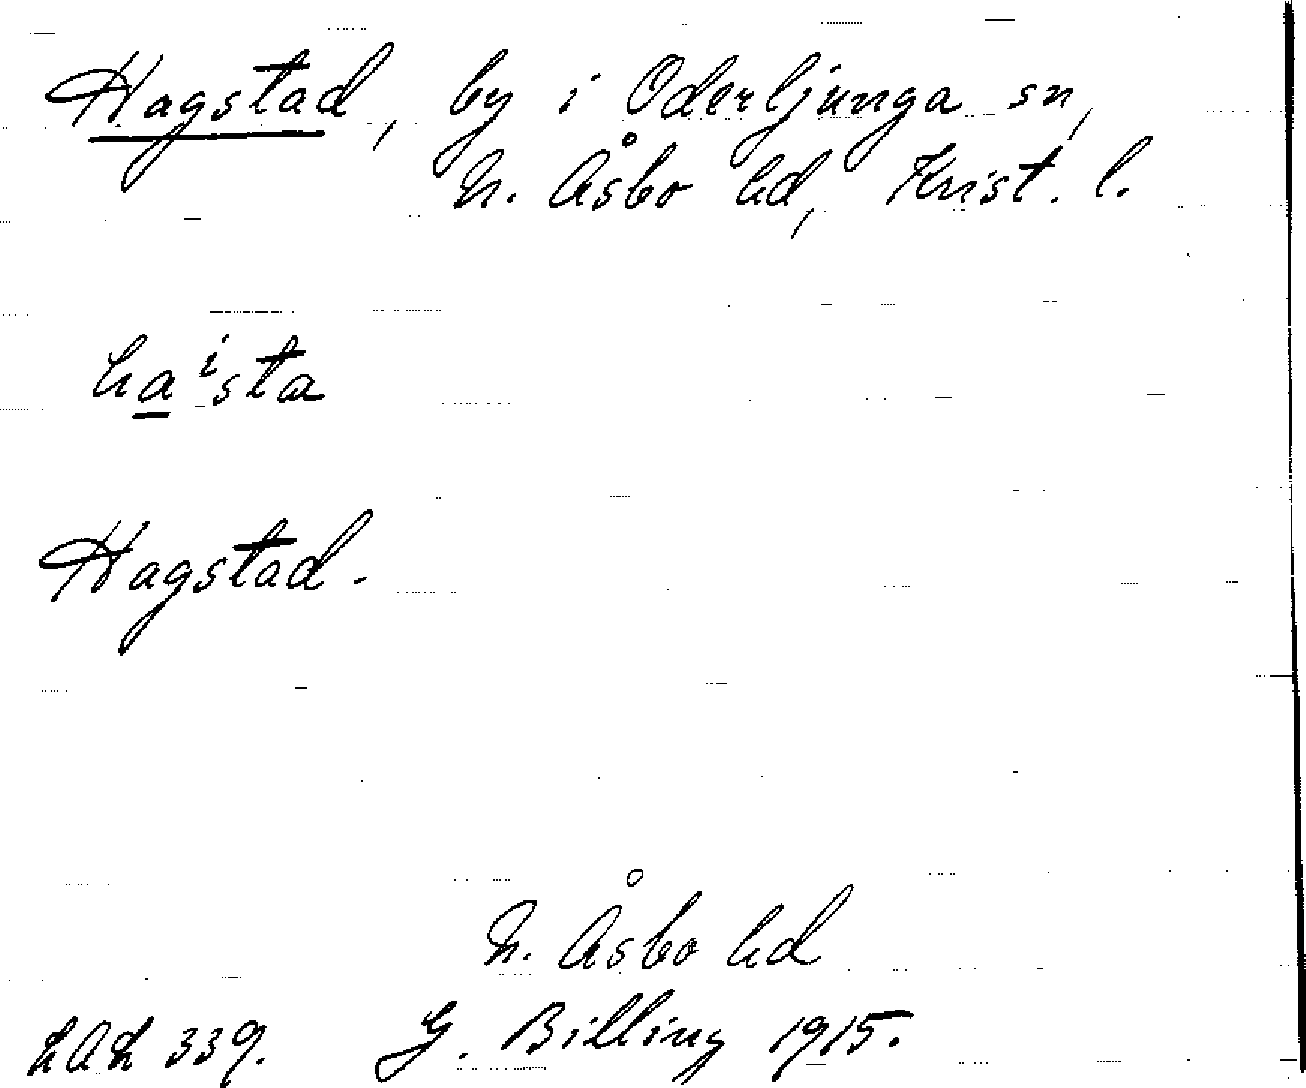 Hagstad, by i Oderljunga sn,
N. Åsbo hd, Krist. l.
haista
Hagstad.
N. Åsbo hd
LAL 339. G. Billing 1915.